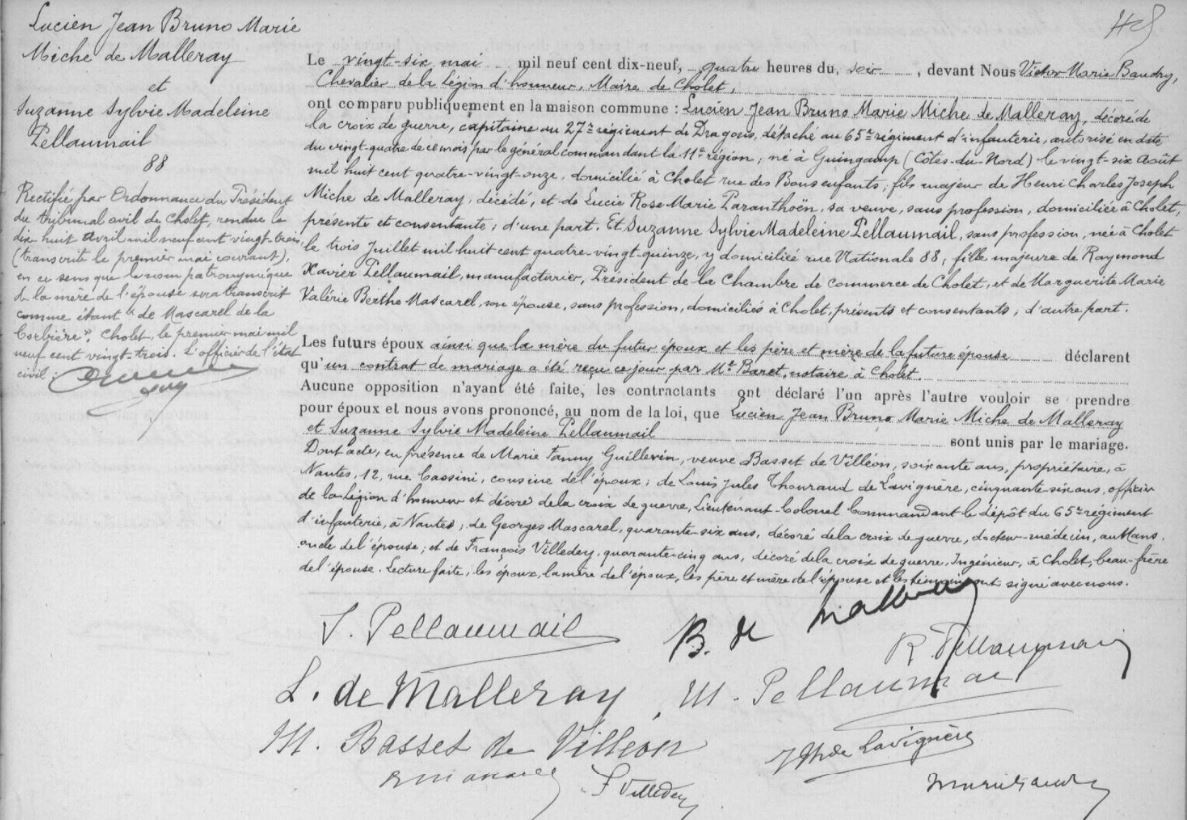 Lucien Jean Bruno Marie
Miche de Malleray
et
Suzanne Sylvie Madeleine
Pellaumail
88
Rectifié par Ordonnance du Président
du tribunal civil de Cholet, rendue le
dix huit avril mil neuf cent vingt trois
(transcrite le premier mai courant),
en ce sens que le nom patronymique
de la mère de l'épouse sera transcrit
comme étant "de Mascarel de la
Corbière". Cholet, le premier mai mil
neuf cent vingt trois. L'officier de l'état
civil :
Le vingt-six mai mil neuf cent dix-neuf, quatre heures du soir, devant Nous Victor Marie Baudry,
Chevalier de la légion d'honneur, Maire de Cholet,
ont comparu publiquement en la maison commune : Lucien Jean Bruno Marie Miche de Malleray, décoré de
la croix de guerre, capitaine au 27e régiment de Dragons, détaché au 65e régiment d'infanterie, autorisé en date
du vingt-quatre de ce mois par le général commandant la 11e région ; né à Guingamp (Côtes-du-Nord) le vingt-six Août
mil huit cent quatre-vingt-onze, domicilié à Cholet rue des Bons enfants, fils majeur de Henri Charles Joseph
Miche de Malleray, décédé, et de Lucie Rose Marie Paranthoën, sa veuve, sans profession, domiciliée à Cholet,
présente et consentante ; d'une part. Et Suzanne Sylvie Madeleine Pellaumail, sans profession, née à Cholet
le trois Juillet mil huit cent quatre-vingt-quinze, y domiciliée rue Nationale 88, fille majeure de Raymond
Xavier Pellaumail, manufacturier, Président de la Chambre de commerce de Cholet, et de Marguerite Marie
Valérie Berthe Mascarel, son épouse, sans profession, domiciliés à Cholet, présents et consentants ; d'autre part.
Les futurs époux ainsi que la mère du futur époux et les père et mère de la future épouse déclarent
qu'un contrat de mariage a été reçu ce jour par Me Baret, notaire à Cholet.
Aucune opposition n'ayant été faite, les contractants ont déclaré l'un après l'autre vouloir se prendre
pour époux et nous avons prononcé, au nom de la loi, que Lucien Jean Bruno Marie Miche de Malleray
et Suzanne Sylvie Madeleine Pellaumail sont unis par le mariage.
Dont acte, en présence de Marie Fanny Guillevin, veuve Basset de Villéon, soixante ans, propriétaire, à
Nantes, 12, rue Cassini, cousine de l'époux ; de Louis Jules Thouraud de Lavignère, cinquante six ans, officier
de la Légion d'honneur et décoré de la croix de guerre, Lieutenant Colonel Commandant le dépôt du 65e régiment
d'infanterie, à Nantes ; de Georges Mascarel, quarante-six ans, décoré de la croix de guerre, docteur-médecin, au Mans,
oncle de l'épouse, et de François Villedey, quarante-cinq ans, décoré de la croix de guerre, Ingénieur, à Cholet, beau-frère
de l'épouse. Lecture faite, les époux, la mère de l'époux, les père et mère de l'épouse et les témoins ont signé avec nous.
S. Pellaumail
B. de Malleray
R. Pellaumail
L. de Malleray
M. Pellaumail
M. Basset de Villéon
de Lavignère
F Villedey